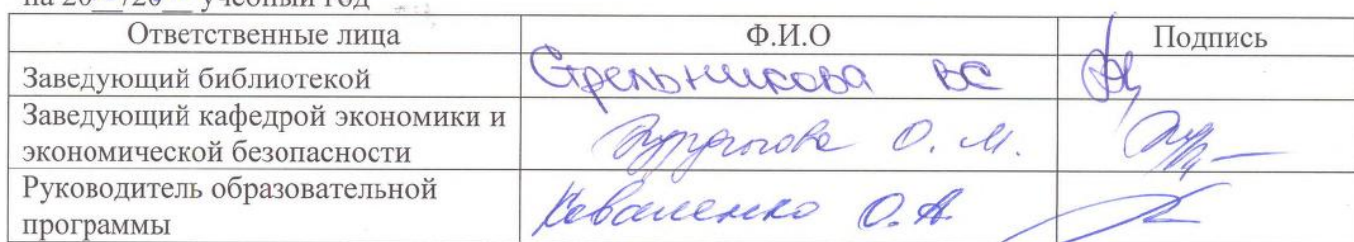 на 20__/20__ учебный год
Ответственные лица Ф.И.О Подпись
Заведующий библиотекой Стрельникова ВС
Заведующий кафедрой экономики и
экономической безопасности О. М.
Руководитель образовательной
программы Коваленко О.А